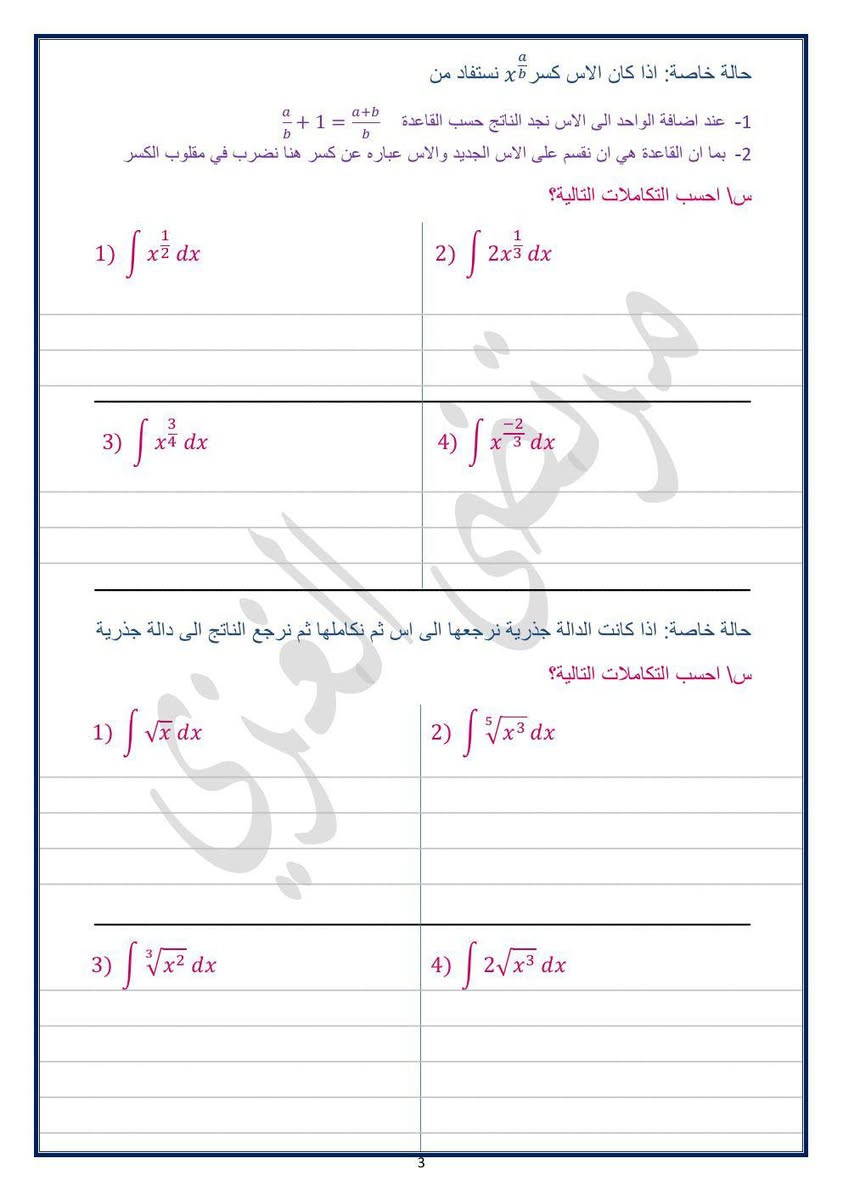 حالة خاصة: اذا كان الاس كسر x^(a/b) نستفاد من
1- عند اضافة الواحد الى الاس نجد الناتج حسب القاعدة a/b + 1 = (a+b)/b
2- بما ان القاعدة هي ان نقسم على الاس الجديد والاس عباره عن كسر هنا نضرب في مقلوب الكسر
س\ احسب التكاملات التالية؟
1) ∫ x^(1/2) dx
2) ∫ 2x^(1/3) dx
3) ∫ x^(3/4) dx
4) ∫ x^(-2/3) dx
حالة خاصة: اذا كانت الدالة جذرية نرجعها الى اس ثم نكاملها ثم نرجع الناتج الى دالة جذرية
س\ احسب التكاملات التالية؟
1) ∫ √x dx
2) ∫ ⁵√x³ dx
3) ∫ ³√x² dx
4) ∫ 2√x³ dx
مرتضى الغزي
3